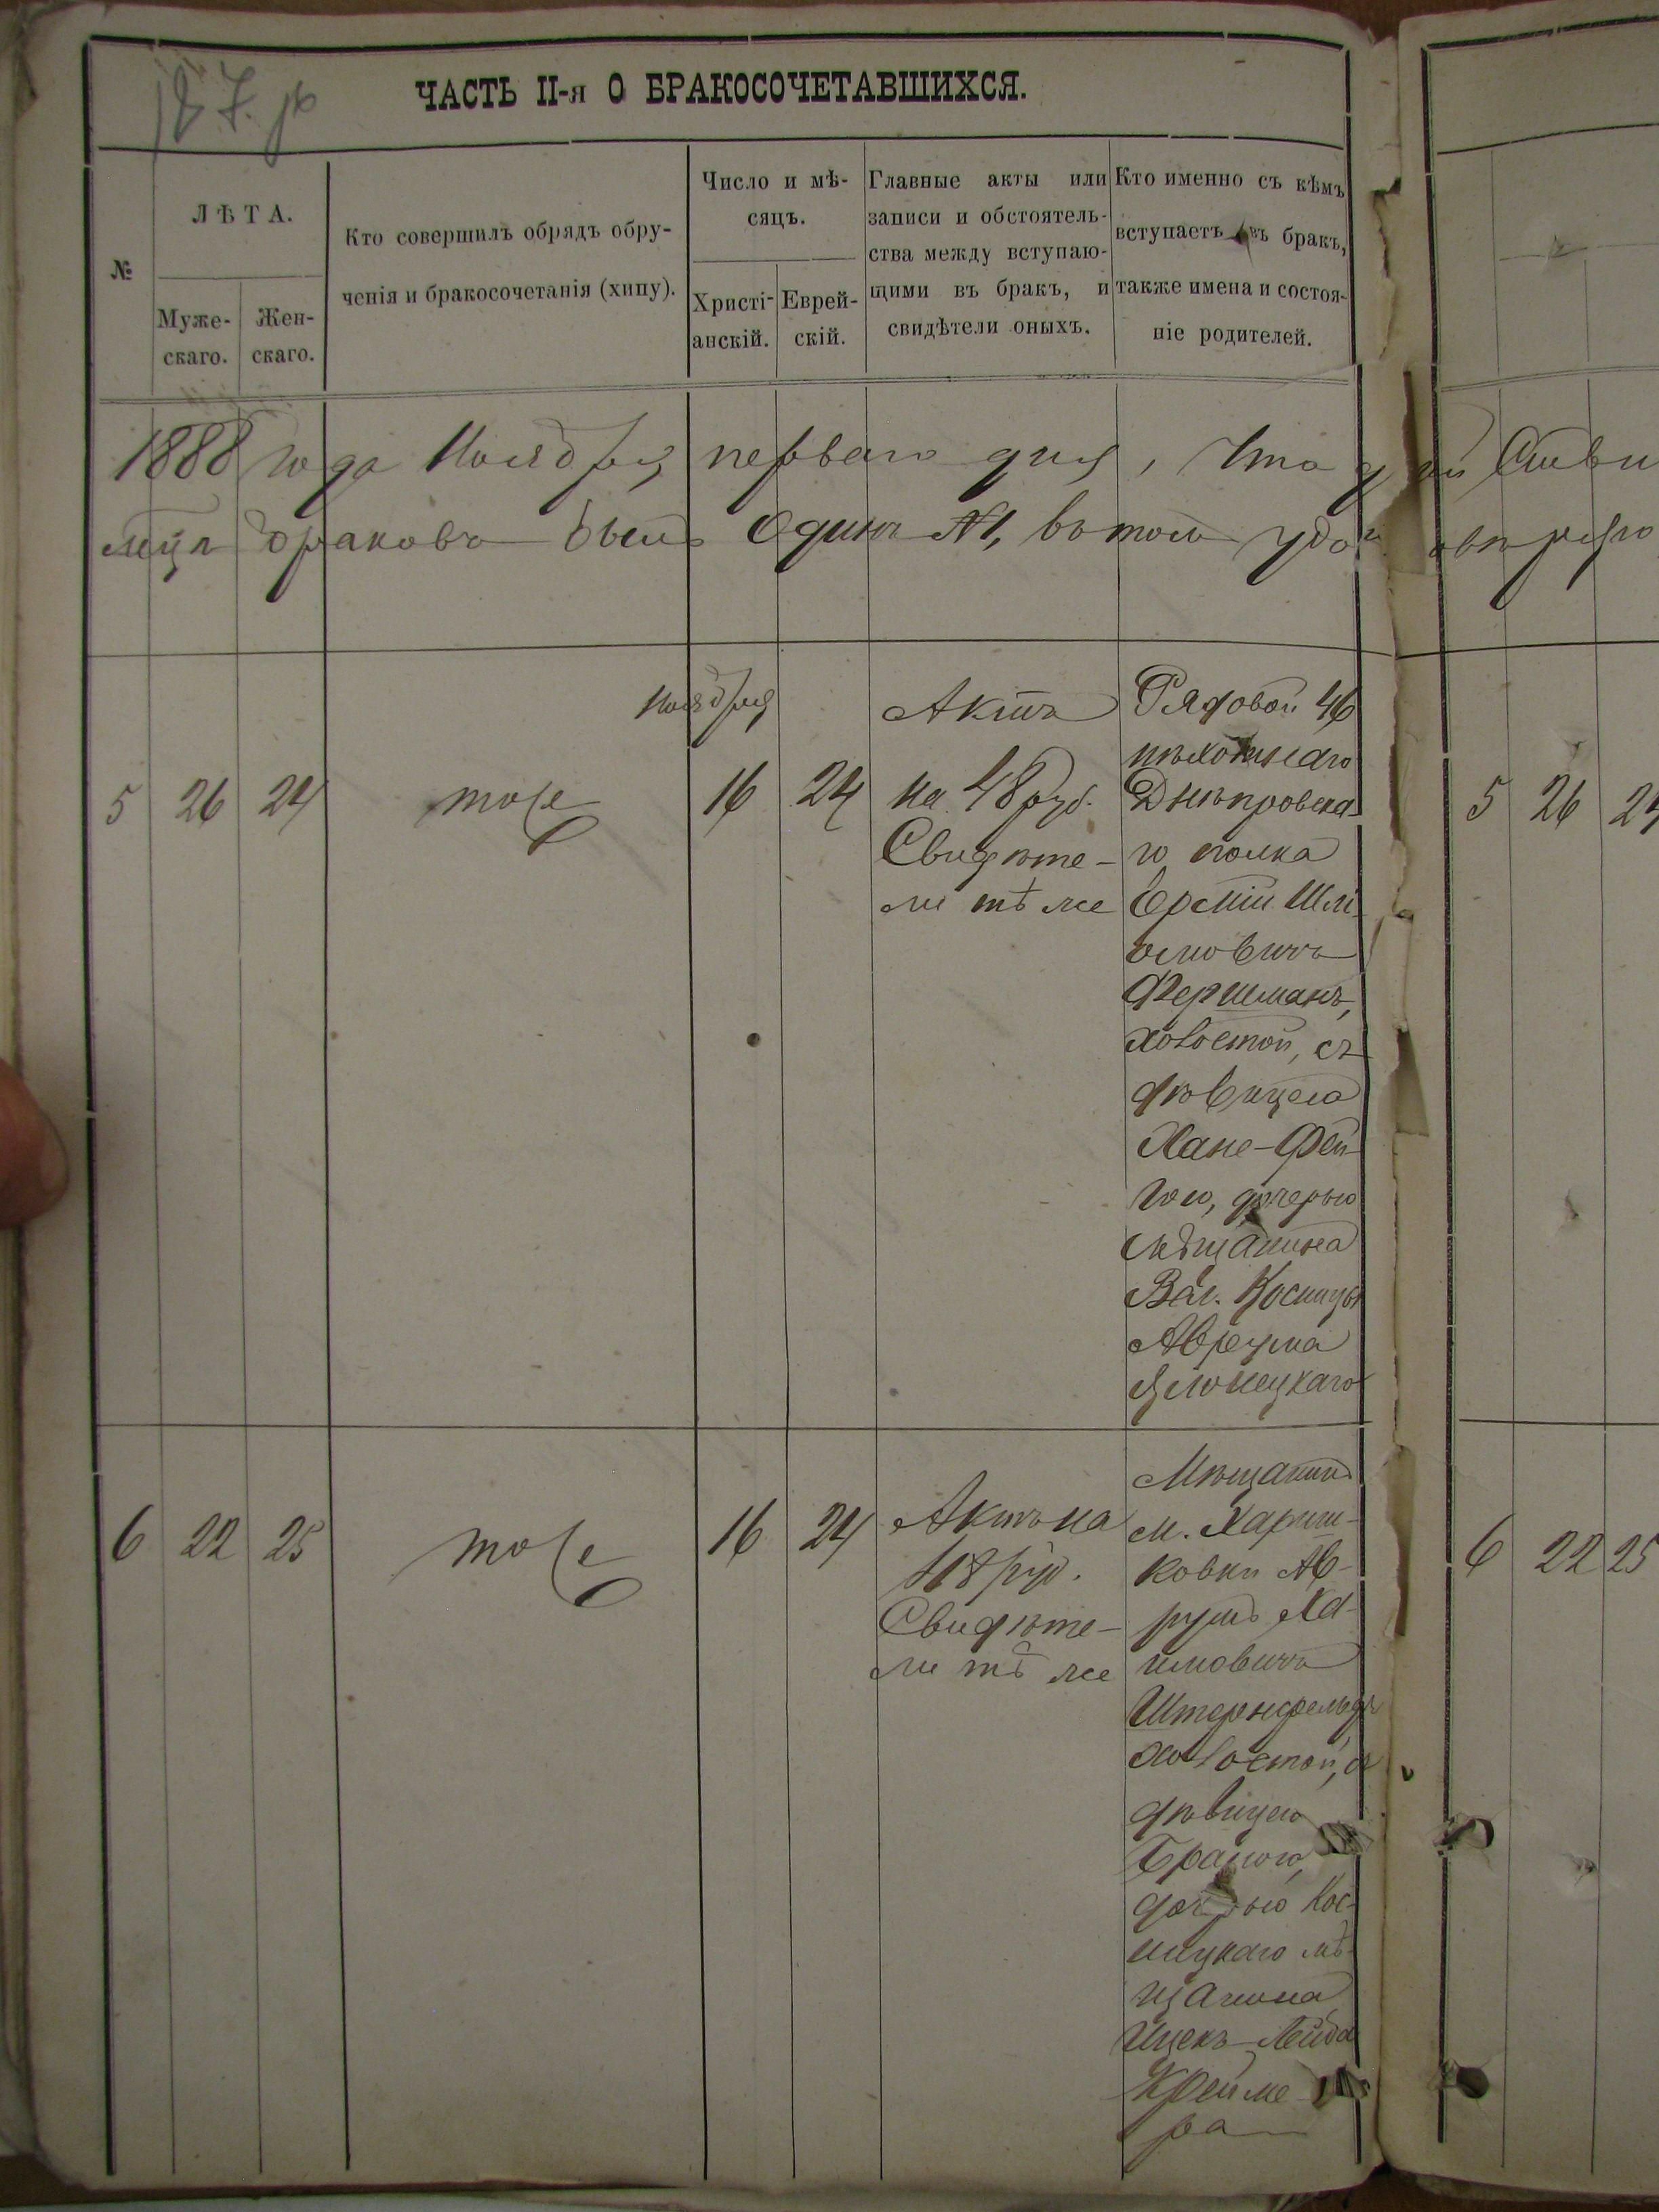 ЧАСТЬ II-я О БРАКОСОЧЕТАВШИХСЯ.
№
ЛѢТА.
Муже-
скаго.
Жен-
скаго.
Кто совершилъ обрядъ обру-
ченія и бракосочетанія (хипу).
Число и мѣ-
сяцъ.
Христі-
анскій.
Еврей-
скій.
Главные акты или
записи и обстоятель-
ства между вступаю-
щими въ бракъ, и
свидѣтели оныхъ.
Кто именно съ кѣмъ
вступаетъ въ бракъ,
также имена и состоя-
ніе родителей.
1888 года Ноября перваго дня, Что
браковъ было Одинъ №1, въ томъ
Ноября
5 26 24 тоже 16 24
Актъ
на 48 руб.
Свидѣте-
ли тѣ же
Рядовой 46
пѣхотнаго
Днѣпровска-
го полка
Шли-
омовичъ
Фершманъ,
холостой, съ
дѣвицею
Хане-Фей-
гою, дочерью
мѣщанина
Ваг. Косницы
Аврума
Яблонецкаго
5 26 24
6 22 25 тоже 16 24
Актъ на
48 руб.
Свидѣте-
ли тѣ же
Мѣщанинъ
м.
ковки Ав-
румъ Ха-
имовичъ
Штернфельдъ
холостой, съ
дѣвицею
дочерью Кос-
ницкаго мѣ-
щанина
Ицекъ-Лейба
Крейме-
ра
6 22 25